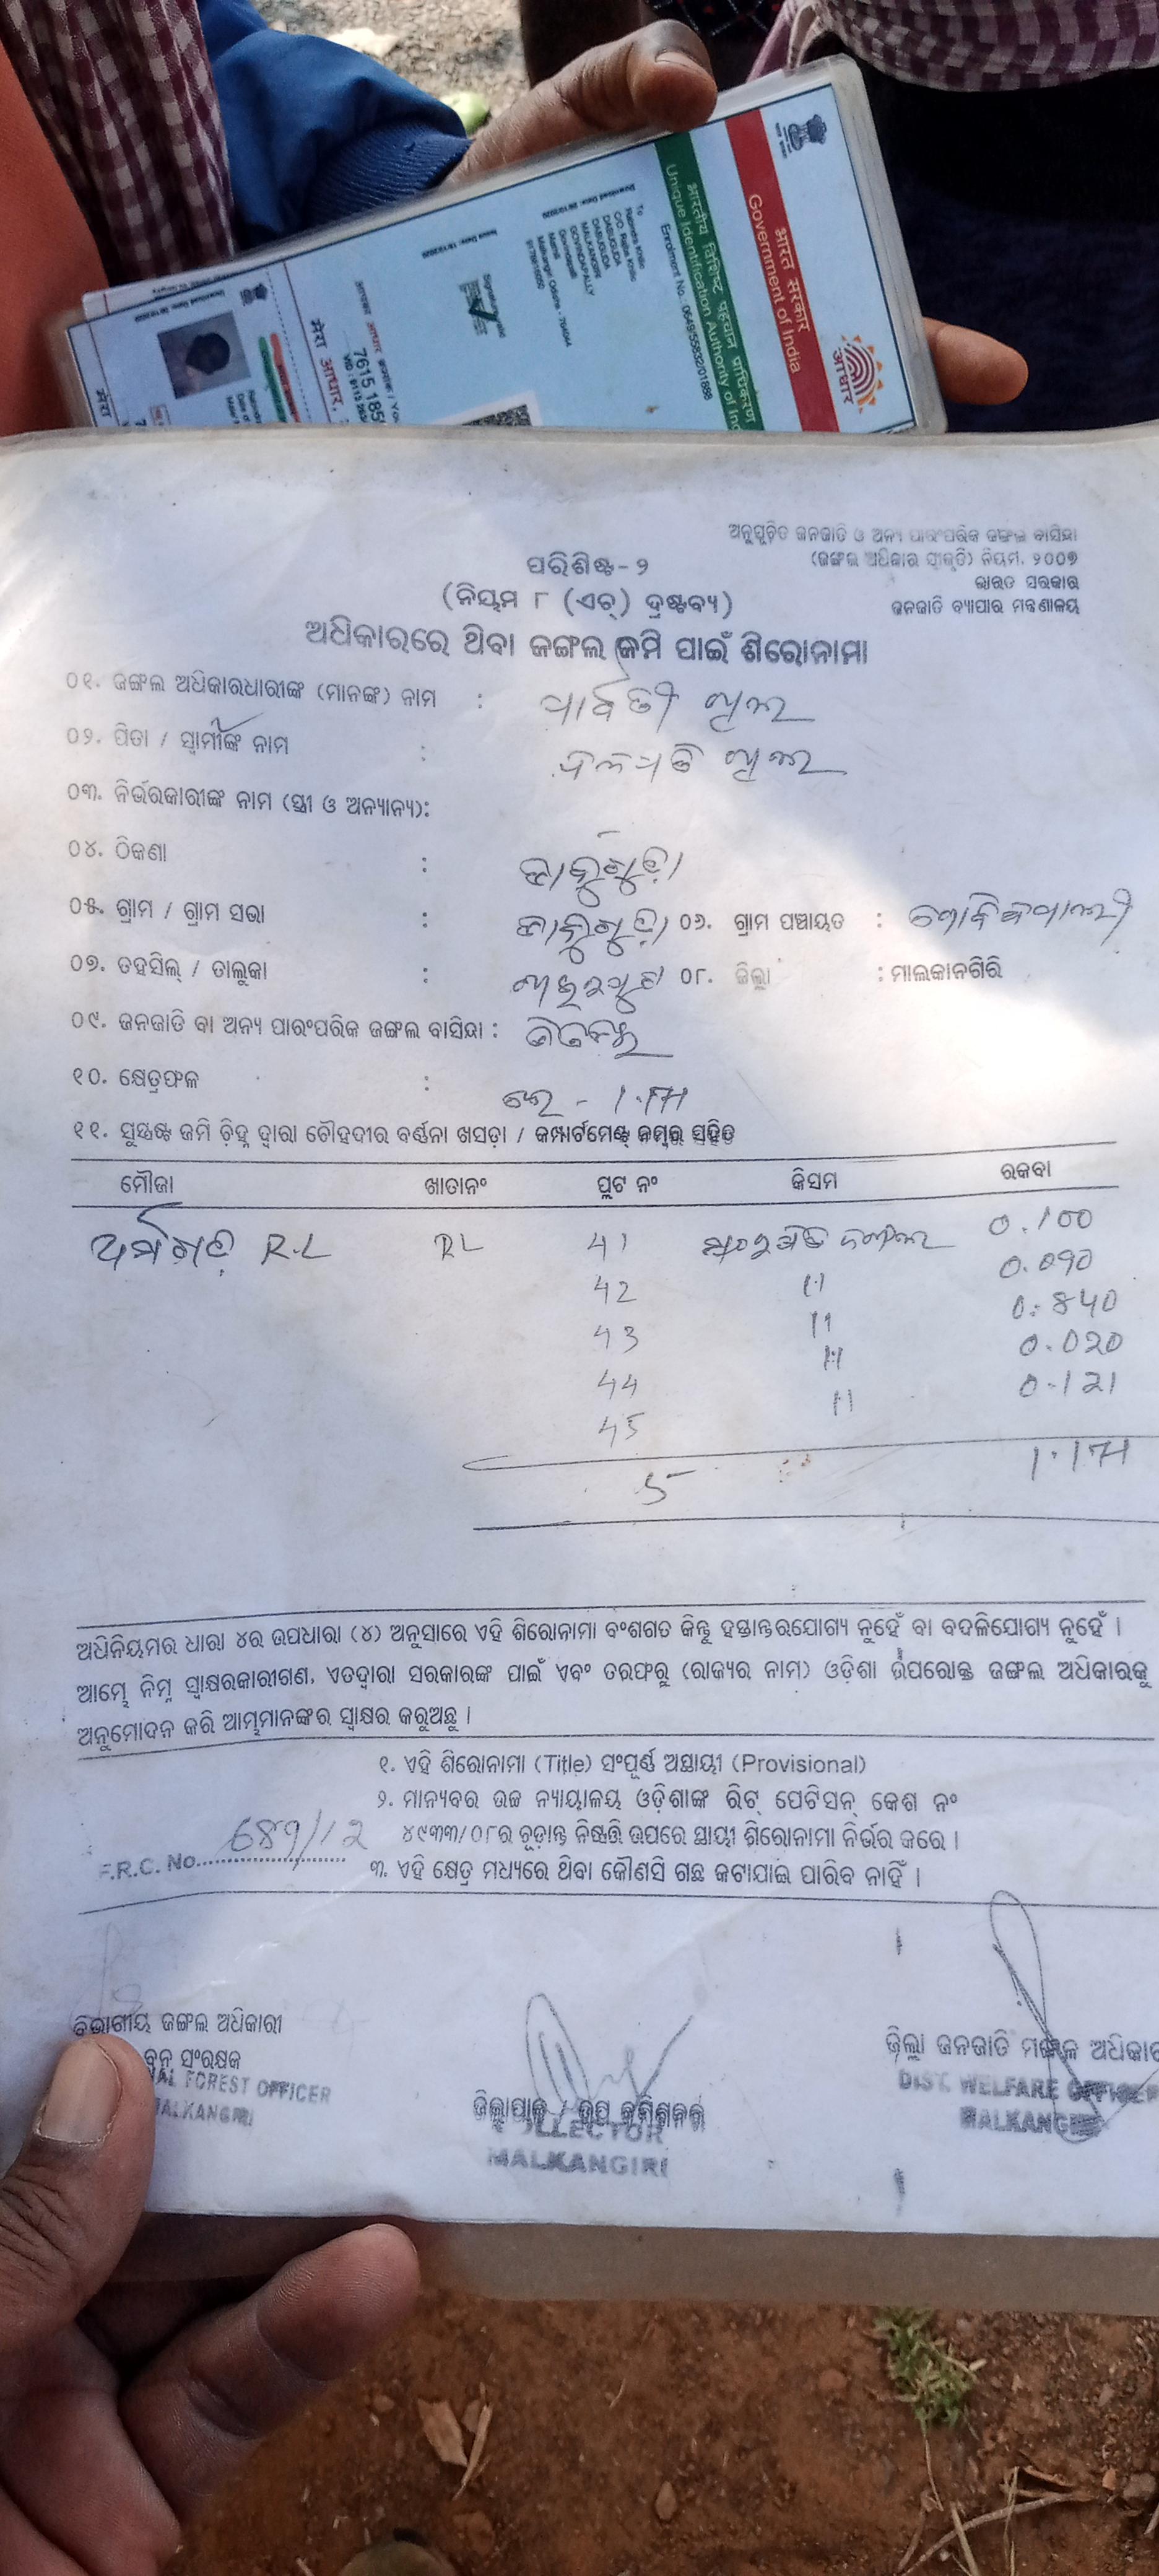 भारत सरकार
Government of India
भारतीय विशिष्ट पहचान प्राधिकरण
Unique Identification Authority of Ind
Enrolment No.: 0649/55832/01888
To
C/O: Raju Khilo
DABUGUDA
DABUGUDA
MALKANGIRI
GOVINDAPALLY
Govindapalli
Malkangiri Odisha - 764044
आधार
मेरा आधार,
7615 185
ଅନୁସୂଚିତ ଜନଜାତି ଓ ଅନ୍ୟ ପାରଂପରିକ ଜଙ୍ଗଲ ବାସିନ୍ଦା
(ଜଙ୍ଗଲ ଅଧିକାର ସ୍ୱୀକୃତି) ନିୟମ, ୨୦୦୭
ଭାରତ ସରକାର
ଜନଜାତି ବ୍ୟାପାର ମନ୍ତ୍ରଣାଳୟ
ପରିଶିଷ୍ଟ - ୨
(ନିୟମ ୮ (ଏଚ୍) ଦ୍ରଷ୍ଟବ୍ୟ)
ଅଧିକାରରେ ଥିବା ଜଙ୍ଗଲ ଜମି ପାଇଁ ଶିରୋନାମା
୦୧. ଜଙ୍ଗଲ ଅଧିକାରଧାରୀଙ୍କ (ମାନଙ୍କ) ନାମ : ପାର୍ବତୀ
୦୨. ପିତା / ସ୍ୱାମୀଙ୍କ ନାମ :
୦୩. ନିର୍ଭରକାରୀଙ୍କ ନାମ (ସ୍ତ୍ରୀ ଓ ଅନ୍ୟାନ୍ୟ):
୦୪. ଠିକଣା :
୦୫. ଗ୍ରାମ / ଗ୍ରାମ ସଭା : ୦୬. ଗ୍ରାମ ପଞ୍ଚାୟତ : ଗୋବିନ୍ଦପାଲୀ
୦୭. ତହସିଲ୍ / ତାଲୁକା : ୦୮. ଜିଲ୍ଲା : ମାଲକାନଗିରି
୦୯. ଜନଜାତି ବା ଅନ୍ୟ ପାରଂପରିକ ଜଙ୍ଗଲ ବାସିନ୍ଦା :
୧୦. କ୍ଷେତ୍ରଫଳ :
୧୧. ସୁସ୍ପଷ୍ଟ ଜମି ଚିହ୍ନ ଦ୍ୱାରା ଚୌହଦୀର ବର୍ଣ୍ଣନା ଖସଡ଼ା / କମ୍ପାର୍ଟମେଣ୍ଟ୍ ନମ୍ବର ସହିତ
ମୌଜା ଖାତାନଂ ପ୍ଲଟ ନଂ କିସମ ରକବା
R.L RL 41 0.100
42 11 0.090
43 11 0.840
44 11 0.020
45 11 0.121
5 1.171
ଅଧିନିୟମର ଧାରା ୪ର ଉପଧାରା (୪) ଅନୁସାରେ ଏହି ଶିରୋନାମା ବଂଶଗତ କିନ୍ତୁ ହସ୍ତାନ୍ତରଯୋଗ୍ୟ ନୁହେଁ ବା ବଦଳିଯୋଗ୍ୟ ନୁହେଁ ।
ଆମ୍ଭେ ନିମ୍ନ ସ୍ୱାକ୍ଷରକାରୀଗଣ, ଏତଦ୍ୱାରା ସରକାରଙ୍କ ପାଇଁ ଏବଂ ତରଫରୁ (ରାଜ୍ୟର ନାମ) ଓଡ଼ିଶା ଉପରୋକ୍ତ ଜଙ୍ଗଲ ଅଧିକାରକୁ
ଅନୁମୋଦନ କରି ଆମ୍ଭମାନଙ୍କର ସ୍ୱାକ୍ଷର କରୁଅଛୁ ।
୧. ଏହି ଶିରୋନାମା (Title) ସଂପୂର୍ଣ୍ଣ ଅସ୍ଥାୟୀ (Provisional)
୨. ମାନ୍ୟବର ଉଚ୍ଚ ନ୍ୟାୟାଳୟ ଓଡ଼ିଶାଙ୍କ ରିଟ୍ ପେଟିସନ୍ କେଶ ନଂ
୪୯୩୩/୦୮ର ଚୂଡ଼ାନ୍ତ ନିଷ୍ପତ୍ତି ଉପରେ ସ୍ଥାୟୀ ଶିରୋନାମା ନିର୍ଭର କରେ ।
F.R.C. No. 689/12
୩. ଏହି କ୍ଷେତ୍ର ମଧ୍ୟରେ ଥିବା କୌଣସି ଗଛ କଟାଯାଇ ପାରିବ ନାହିଁ ।
ବିଭାଗୀୟ ଜଙ୍ଗଲ ଅଧିକାରୀ
ବନ ସଂରକ୍ଷକ
AL FOREST OFFICER
MALKANGIRI
ଜିଲ୍ଲାପାଳ / ଉପ କମିଶନର
COLLECTOR
MALKANGIRI
ଜିଲ୍ଲା ଜନଜାତି ମଙ୍ଗଳ ଅଧିକାର
DIST. WELFARE OFFICER
MALKANGIRI